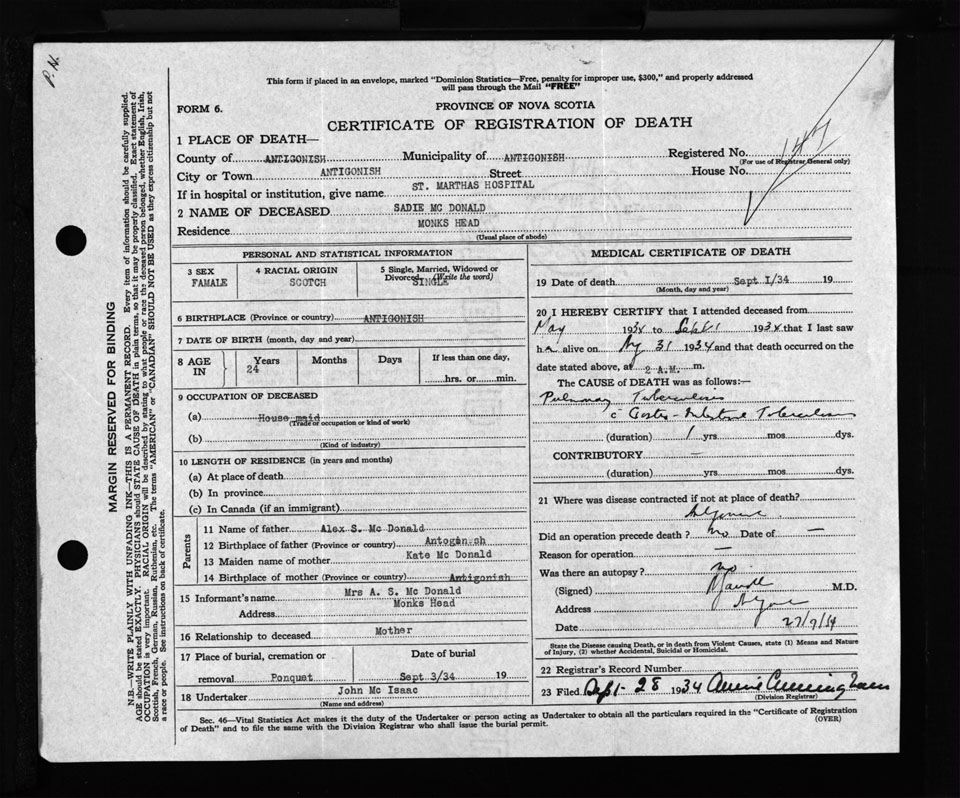 P. N.
This form if placed in an envelope, marked "Dominion Statistics—Free, penalty for improper use, $300," and properly addressed
will pass through the Mail "FREE"
FORM 6.
PROVINCE OF NOVA SCOTIA
CERTIFICATE OF REGISTRATION OF DEATH
1 PLACE OF DEATH—
County of ANTIGONISH Municipality of ANTIGONISH Registered No. 147
(For use of Registrar General only)
City or Town ANTIGONISH Street House No.
If in hospital or institution, give name ST. MARTHAS HOSPITAL
2 NAME OF DECEASED SADIE MC DONALD
Residence MONKS HEAD
(Usual place of abode)
PERSONAL AND STATISTICAL INFORMATION
3 SEX FAMALE
4 RACIAL ORIGIN SCOTCH
5 Single, Married, Widowed or
Divorced (Write the word) SINGLE
6 BIRTHPLACE (Province or country) ANTIGONISH
7 DATE OF BIRTH (month, day and year)
8 AGE IN Years 24 Months Days If less than one day,
hrs. or min.
9 OCCUPATION OF DECEASED
(a) House maid
(Trade or occupation or kind of work)
(b)
(Kind of industry)
10 LENGTH OF RESIDENCE (in years and months)
(a) At place of death
(b) In province
(c) In Canada (if an immigrant)
Parents
11 Name of father Alex S. Mc Donald
12 Birthplace of father (Province or country) Antogonish
13 Maiden name of mother Kate Mc Donald
14 Birthplace of mother (Province or country) Antigonish
15 Informant's name Mrs A. S. Mc Donald
Address Monks Head
16 Relationship to deceased Mother
17 Place of burial, cremation or
removal Ponquet
Date of burial
Sept 3/34 19
18 Undertaker John Mc Isaac
(Name and address)
MEDICAL CERTIFICATE OF DEATH
19 Date of death Sept I/34 19
(Month, day and year)
20 I HEREBY CERTIFY that I attended deceased from
May 1934 to Sept 1 1934 that I last saw
h alive on Aug 31 1934 and that death occurred on the
date stated above, at 2 A.M. m.
The CAUSE OF DEATH was as follows:—
Pulmonary Tuberculosis
c Gastro-Intestinal Tuberculosis
(duration) 1 yrs. mos. dys.
CONTRIBUTORY —
(duration) yrs. mos. dys.
21 Where was disease contracted if not at place of death?
Did an operation precede death? no Date of —
Reason for operation —
Was there an autopsy? no
(Signed) M.D.
Address
Date 27/9/34
State the Disease causing Death, or in death from Violent Causes, state (1) Means and Nature
of Injury, (2) whether Accidental, Suicidal or Homicidal.
22 Registrar's Record Number
23 Filed Sept- 28 1934 Annie Cunningham
(Division Registrar)
Sec. 46—Vital Statistics Act makes it the duty of the Undertaker or person acting as Undertaker to obtain all the particulars required in the "Certificate of Registration
of Death" and to file the same with the Division Registrar who shall issue the burial permit. (OVER)
MARGIN RESERVED FOR BINDING
N.B.—WRITE PLAINLY WITH UNFADING INK—THIS IS A PERMANENT RECORD. Every item of information should be carefully supplied.
AGE should be stated EXACTLY. PHYSICIANS should STATE CAUSE OF DEATH in plain terms, so that it may be properly classified. Exact statement of
OCCUPATION is very important. RACIAL ORIGIN will be described by stating to what people or race the deceased person belonged, whether English, Irish,
Scottish, French, German, Russian, Ruthenian, etc. The terms "AMERICAN" or "CANADIAN" SHOULD NOT BE USED as they express citizenship but not
a race or people. See instructions on back of certificate.